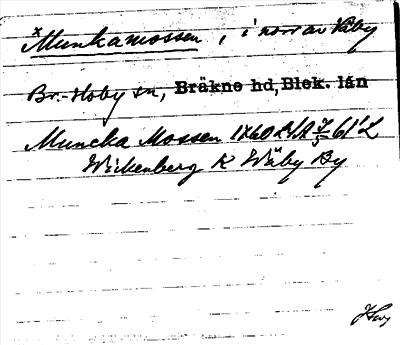 x Munkamossen, i norr av Väby
Br.-Hoby sn, Bräkne hd, Blek. län
Muncka Mossen 1760 LSA 61:L
Wickenberg K Wäby By